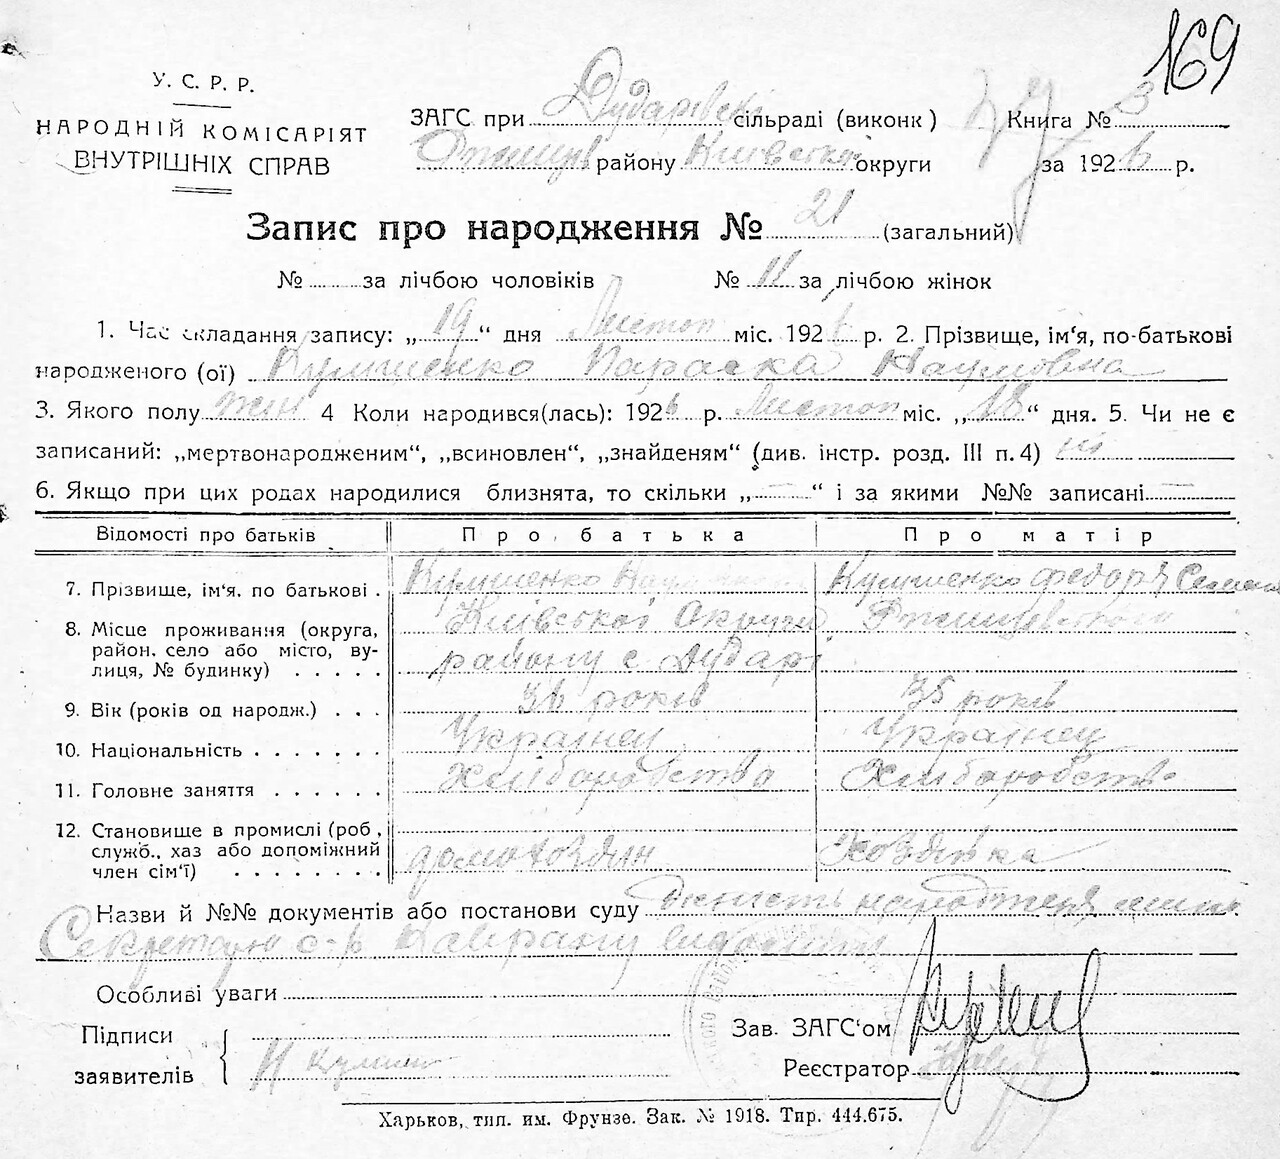 169
У. С. Р. Р.
НАРОДНІЙ КОМІСАРІЯТ
ВНУТРІШНІХ СПРАВ
ЗАГС при Дударівскі сільраді (виконк)
району Київської округи
Книга № 3
за 1926 р.
Запис про народження № 21 (загальний)
№ за лічбою чоловіків № 11 за лічбою жінок
1. Час складання запису: „19“ дня Листоп міс. 1926 р. 2. Прізвище, ім‘я, по-батькові
народженого (ої) Кулишенко Параска Наумовна
3. Якого полу жін 4 Коли народився(лась): 1926 р. Листоп міс. „18“ дня. 5. Чи не є
записаний: „мертвонародженим“, „всиновлен“, „знайденям“ (див. інстр. розд. III п. 4) ні
6. Якщо при цих родах народилися близнята, то скільки „—“ і за якими №№ записані —
Відомості про батьків Про батька Про матір
7. Прізвище, ім‘я, по батькові . Кулишенко Кулишенко Федора
8. Місце проживання (округа, Київської Округи
район, село або місто, ву- району с Дударі
лиця, № будинку) . . . . .
9. Вік (років од народж.) . . . 36 років 35 років
10. Національність . . . . . . . Українец Українец
11. Головне заняття . . . . . . Хліборобство Хліборобств
12. Становище в промислі (роб,
служб., хаз або допоміжний домохозяін Хозяйка
член сім‘ї) . . . . . . . .
Назви й №№ документів або постанови суду
Секретарю с-р
Особливі уваги
Підписи
заявителів Н Кулиш
Зав. ЗАГС‘ом
Реєстратор
Харьков, тип. им. Фрунзе. Зак. № 1918. Тир. 444.675.